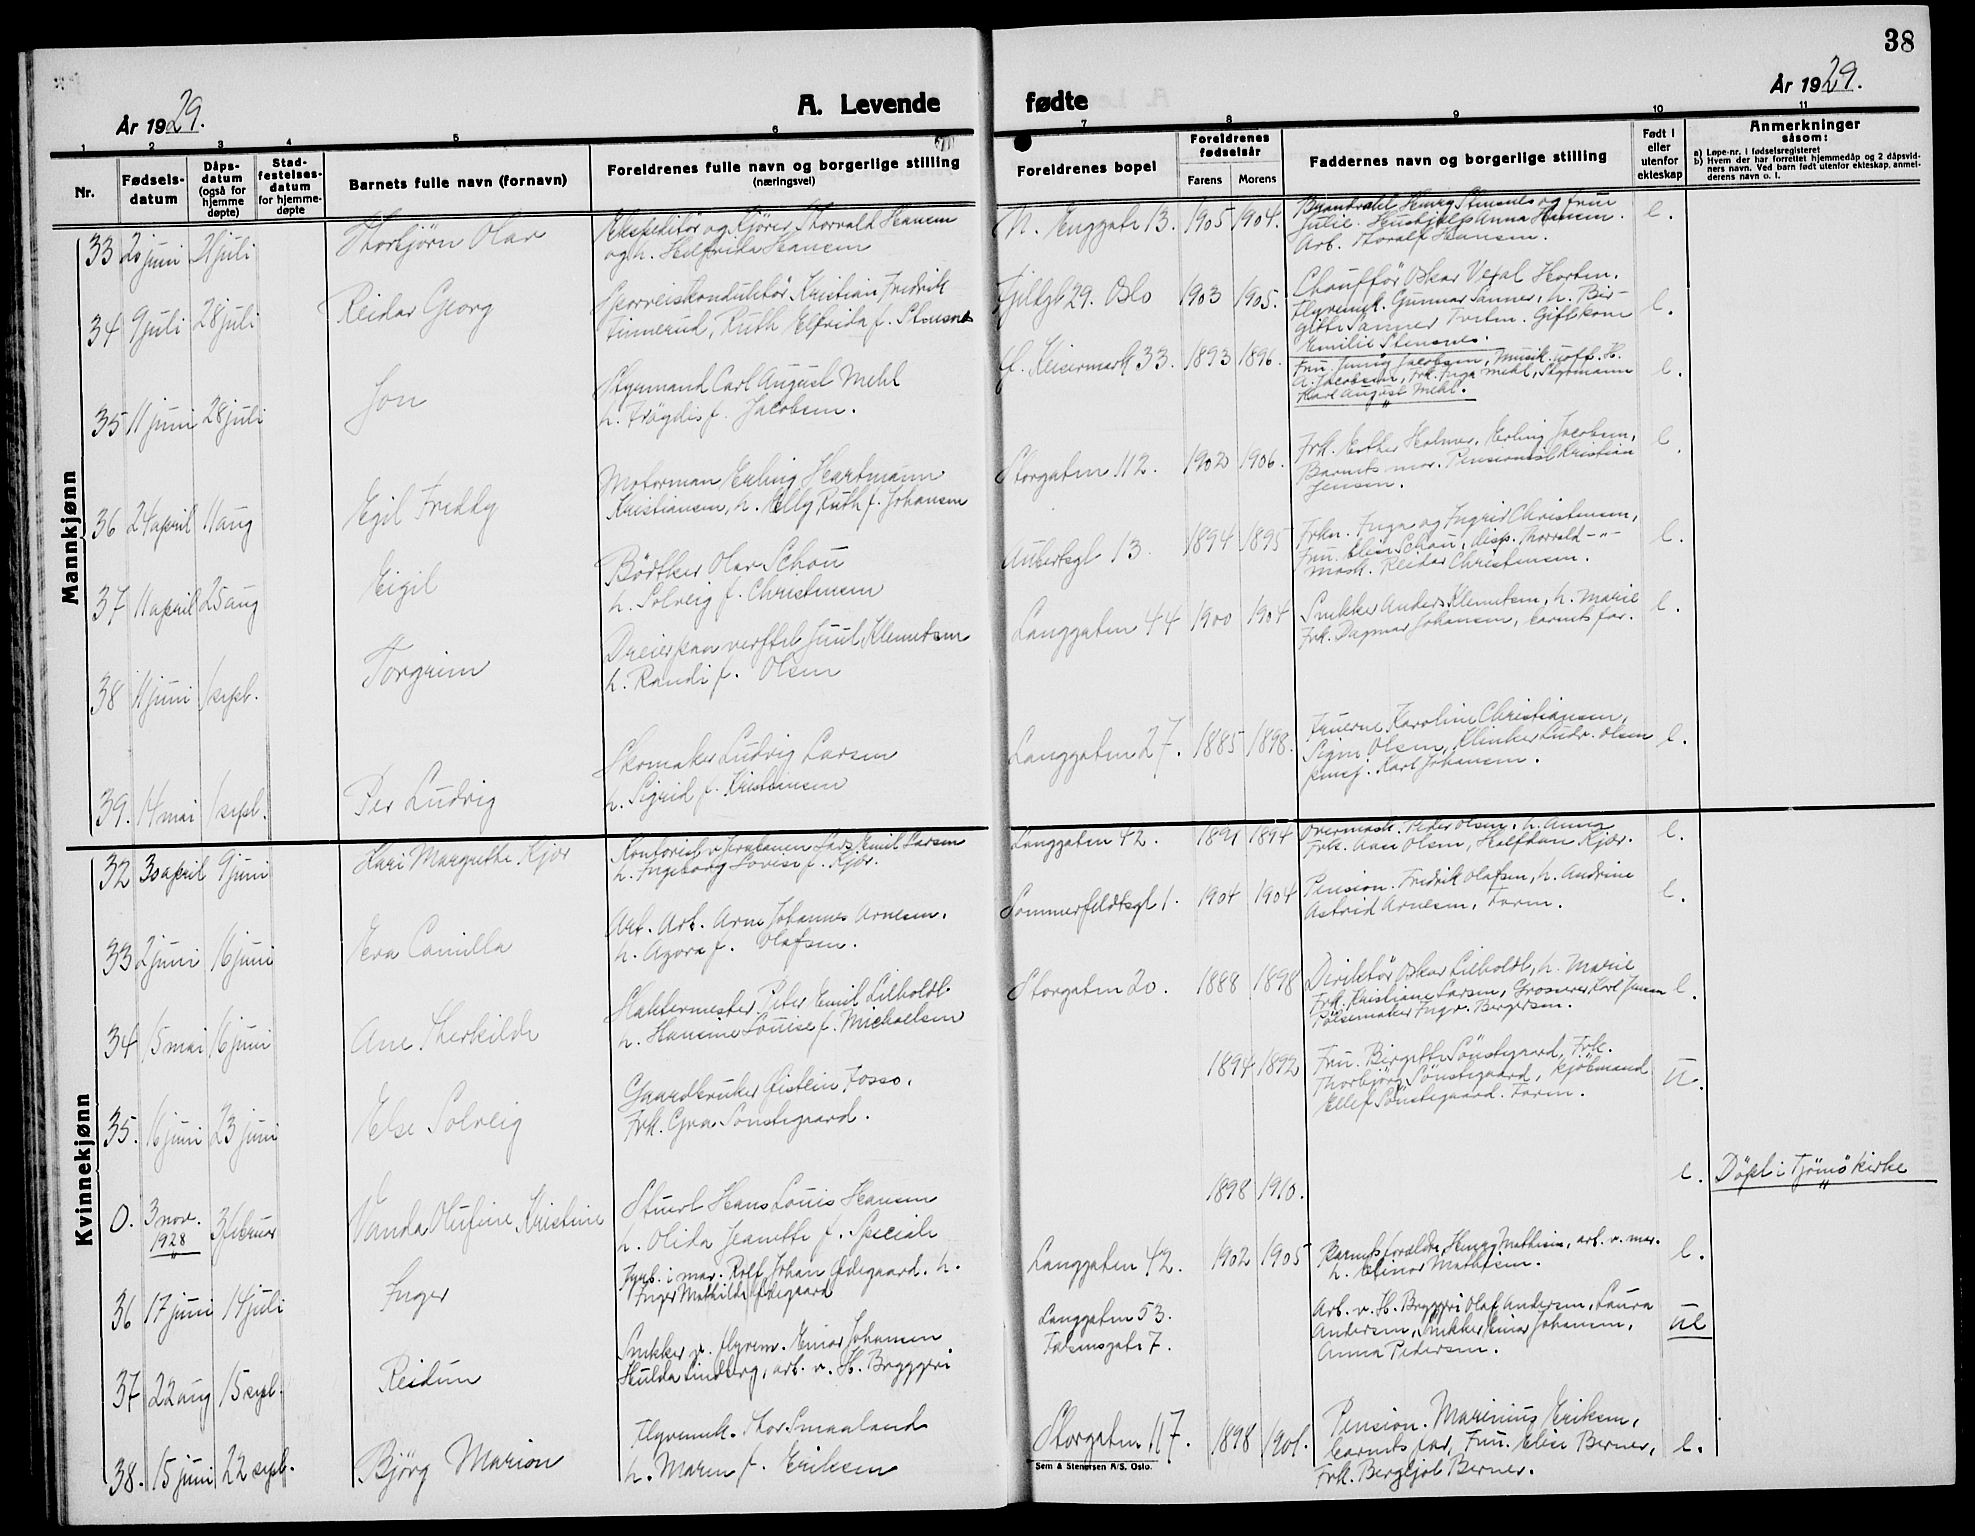 38
År 1929.
A. Levende fødte
År 1929.
1 2 3 4 5 6 7 8 9 10 11
Nr.
Fødsels-
datum
Dåps-
datum
(også for
hjemme
døpte)
Stad-
festelses-
datum
for hjemme-
døpte
Barnets fulle navn (fornavn)
Foreldrenes fulle navn og borgerlige stilling
(næringsvei)
Foreldrenes bopel
Foreldrenes
fødselsår
Farens Morens
Faddernes navn og borgerlige stilling
Født i
eller
utenfor
ekteskap
Anmerkninger
såsom:
a) Løpe-nr. i fødselsregisteret
b) Hvem der har forrettet hjemmedåp og 2 dåpsvid-
ners navn. Ved barn født utenfor ekteskap, anmel-
derens navn o. l.
Mannkjønn
33 20 juni 21 juli Thorbjörn Olav
Ekspeditör og Kjörer Thorvald Hansen
og h. Helfrida Hansen
N. Enggate 13. 1905 1904.
Henry Stensnes og frue
Julie. Anna Hansen.
Arb. Thoralf Hansen.
e.
34 9 juli 28 juli Reidar Georg
Sporveiskonduktör Kristian Fredrik
Finnerud, Ruth Elfrida f. Stensnes
29. Oslo 1903 1905.
Chaufför Oskar Horten.
Flyvemek. Gunnar Sanner, h. Bir-
gitte Sanner
Emilie Stensnes.
e.
35 11 juni 28 juli Jon
Styrmand Carl August Mehl
h. Frögdis f. Jacobsen.
Keisermark 33. 1893 1896.
Fru Jenny Jacobsen, Musik. uoff. H.
A. Jacobsen, Frk. Inga Mehl, Styrmann
Karl August Mehl.
e.
36 24 april 11 aug Egil Freddy
Motorman Erling Hartmann
Kristiansen, h. Elly Ruth f. Johansen
Storgaten 112. 1902 1906.
Frk. Esther Holmer, Erling Jacobsen,
Barnets mor. Pensionist Kristian
Jensen.
e.
37 11 april 25 aug Eigil
Bödtker Olav Schou
h. Solveig f. Christensen
Aubertsgt 13. 1894 1895
Frkn. Inga og Ingrid Christensen,
Fru Elise Schou, disp. Thorvald -"-
mask. Reidar Christensen.
e.
38 11 juni 1 sept. Torgrim
Dreier paa verftet Juul Klemetsen
h. Randi f. Olsen
Langgaten 44 1900 1904
Snekker Anders Klemetsen, h. Marie
Frk. Dagmar Johansen, barnets far.
e.
39. 14 mai 1 sept. Per Ludvig
Skomaker Ludvig Larsen
h. Sigrid f. Kristensen
Langgaten 27. 1885 1898.
Fruerne Karoline Christiansen,
Signe Olsen, Klinker Ludv. Olsen
Karl Johansen.
e.
Kvinnekjønn
32 30 april 9 juni Kari Margrethe Kjær
Kontorist Lars Emil Larsen
h. Ingeborg Lovise f. Kjær.
Langgaten 42. 1891 1894
Overmask. Peder Olsen, h. Anna
Frk. Aase Olsen, Halfdan Kjær.
e.
33 2 juni 16 juni Eva Camilla
Art. Arb. Arne Johannes Arnesen.
h. Agora f. Olafsen.
Sommerfeldtsgt 1. 1904 1904
Pension. Fredrik Olafsen, h. Andrine
Astrid Arnesen, Farm.
e.
34 15 mai 16 juni Ane Therkilde
Slaktermester Peter Emil Lilholdt
h. Hansine Louise f. Michaelsen
Storgaten 20. 1888 1898
Direktör Oskar Lilholdt, h. Marie
Frk. Kristiane Larsen, Grosserer Karl Jensen
Pölsemaker Ingv. Bergersen.
e.
35. 16 juni 23 juni Else Solveig
Gaardbruker Öistein Fosso.
Frk. Gyra Sönstegaard.
1894 1892
Fru. Birgitte Sönstegaard, Frk.
Thorbjörg Sönstegaard, kjöbmand
Ellef Sönstegaard. Farm.
u.
0. 3 nov. 1928 3 februar Vanda Olufine Kristine
Stuert Hans Louis Hansen
h. Olida Jeanette f. Speciale
1898 1910.
e. Döpt i Tjömö kirke
36 17 juni 14 juli Inger
Fyrb. i mar. Rolf Johan Ödegaard. h.
Inger Mathilde Ödegaard
Langgaten 42. 1902 1905
Barnets foreldre, Henry Mathisen, arb. v. mar.
h. Elinor Mathisen.
e.
37 22 aug 15 sept. Reidun
Snekker v. flyvem. Einar Johansen
Hulda Lindberg, arb. v. H. Bryggeri
Langgaten 53.
Falsensgate 7.
Arb. v. H. Bryggeri Olaf Andersen, Laura
Andersen, Snekker Einar Johansen,
Anna Pedersen.
ue
38. 15 juni 22 sept. Björg Marion
Flyvemek. Thor Smaaland
h. Maren f. Eriksen
Storgaten 117. 1898 1901.
Pension. Marinius Eriksen,
barnets far, Fru. Elise Berner,
Frk. Bergljot Berner.
e.
Sem & Stenersen A/S, Oslo.